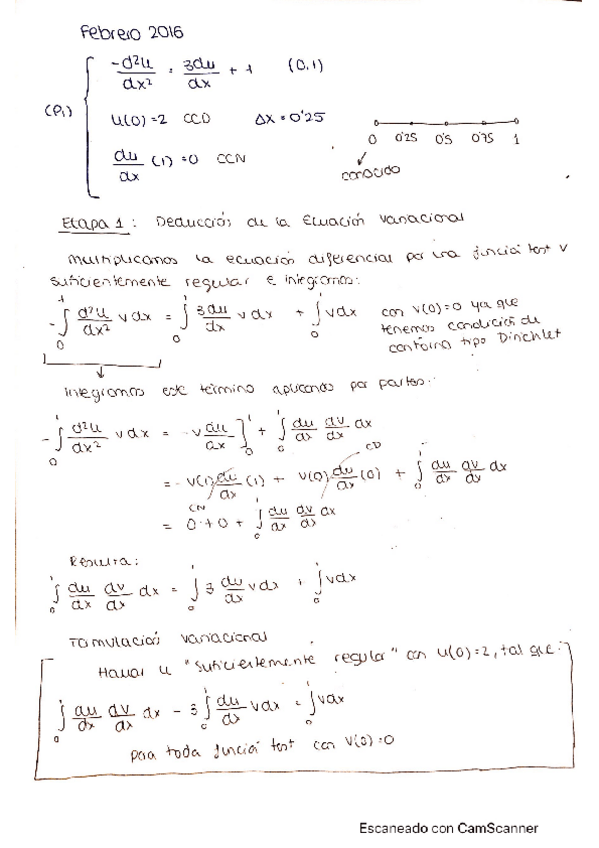 Febrero 2016
(P1) { -d²u/dx² = 3du/dx + 1 (0,1)
u(0)=2 CCD Δx = 0'25
du/dx (1) = 0 CCN
0 0'25 0'5 0'75 1
conocido
Etapa 1: Deducción de la Ecuación variacional
Multiplicamos la ecuación diferencial por una función test v
suficientemente regular e integramos:
-∫₀¹ d²u/dx² v dx = ∫₀¹ 3du/dx v dx + ∫₀¹ v dx con v(0)=0 ya que
tenemos condición de
contorno tipo Dirichlet
Integramos este término aplicando por partes:
-∫₀¹ d²u/dx² v dx = -v du/dx ]₀¹ + ∫₀¹ du/dx dv/dx dx
= -v(1) du/dx (1) + v(0) du/dx (0) + ∫₀¹ du/dx dv/dx dx
CN CD
= 0 + 0 + ∫₀¹ du/dx dv/dx dx
Resulta:
∫₀¹ du/dx dv/dx dx = ∫₀¹ 3 du/dx v dx + ∫₀¹ v dx
Formulación variacional
Hallar u "suficientemente regular" con u(0)=2, tal que:
∫₀¹ du/dx dv/dx dx - 3 ∫₀¹ du/dx v dx = ∫₀¹ v dx
para toda función test con v(0)=0
Escaneado con CamScanner